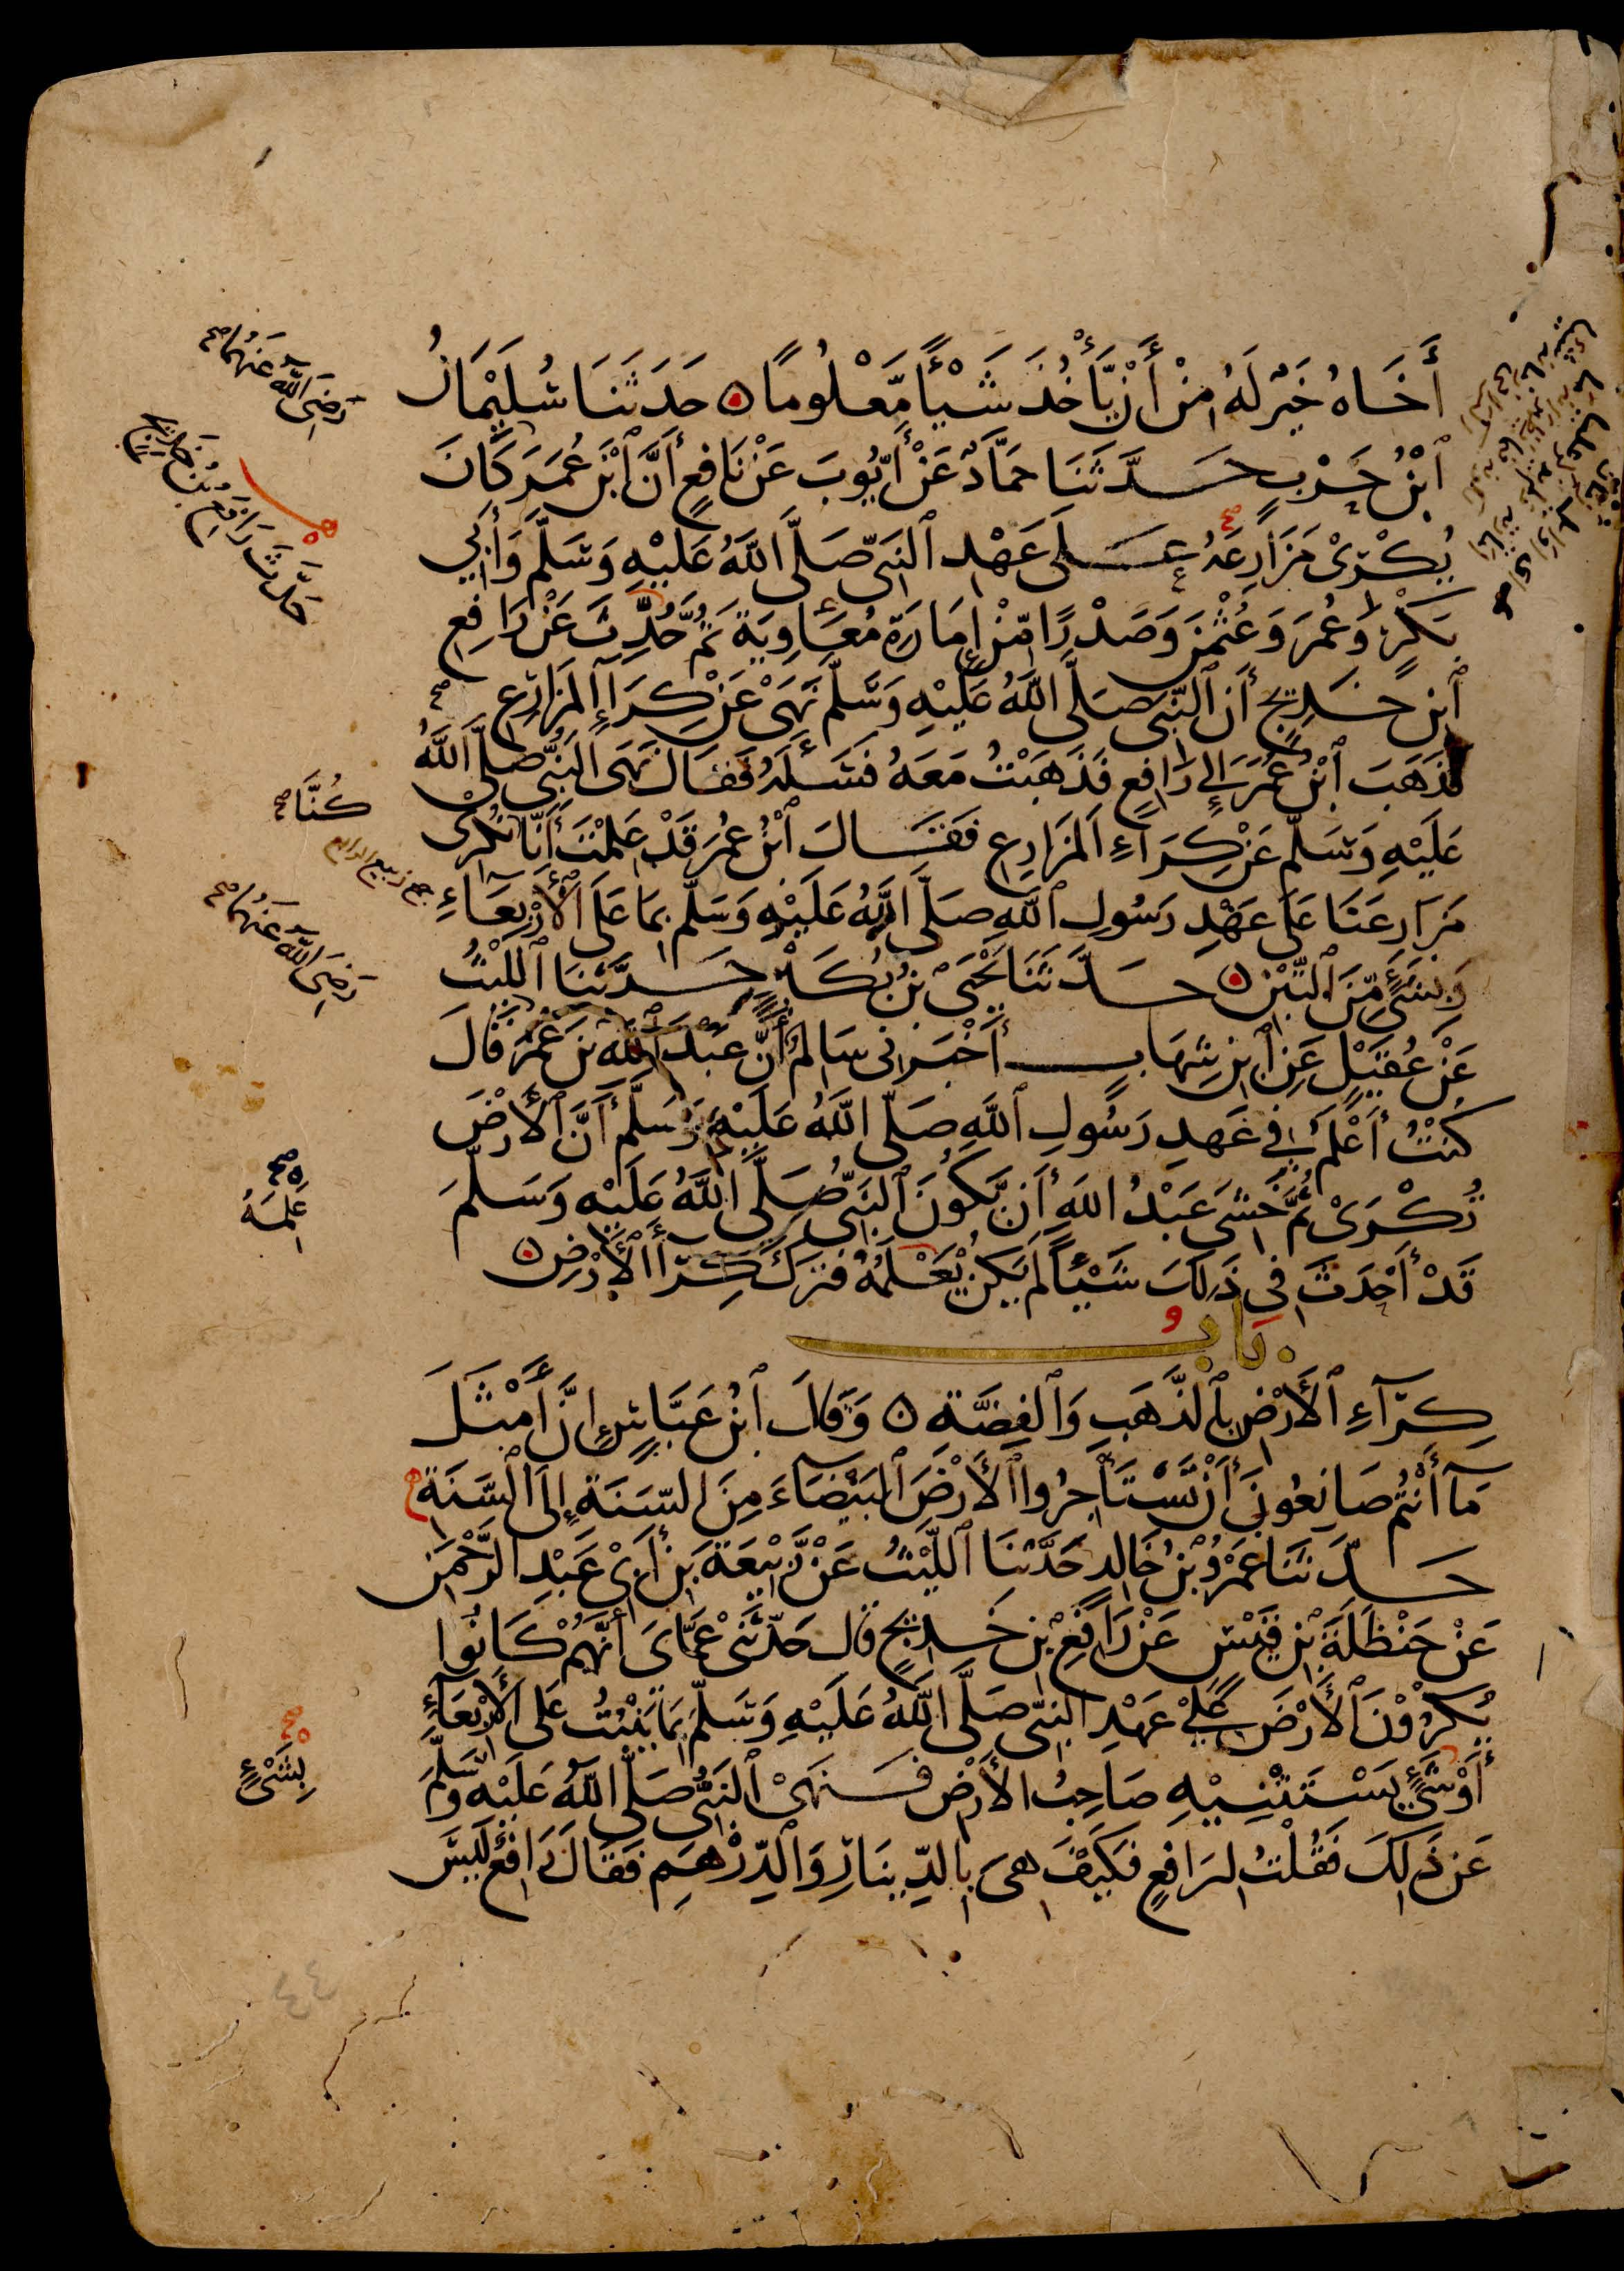 أَخَاهُ خَيْرٌ لَهُ مِنْ أَنْ يَّأْخُذَ شَيْئًا مَّعْلُومًا ۞ حَدَّثَنَا سُلَيْمَانُ
ٱبْنُ حَرْبٍ حَدَّثَنَا حَمَّادٌ عَنْ أَيُّوبَ عَنْ نَافِعٍ أَنَّ ٱبْنَ عُمَرَ كَانَ
يُكْرِىْ مَزَارِعَهُ عَلَى عَهْدِ ٱلنَّبِىِّ صَلَّى ٱللَّهُ عَلَيْهِ وَسَلَّمَ وَأَبِي
بَكْرٍ وَعُمَرَ وَعُثْمٰنَ وَصَدْرًا مِّنْ إِمَارَةِ مُعَاوِيَةَ ثُمَّ حُدِّثَ عَنْ رَافِعِ
ٱبْنِ خَدِيجٍ أَنَّ ٱلنَّبِىَّ صَلَّى ٱللَّهُ عَلَيْهِ وَسَلَّمَ نَهَىْ عَنْ كِرَآءِ الْمَزَارِعِ
فَذَهَبَ ٱبْنُ عُمَرَ إِلَى رَافِعٍ فَذَهَبْتُ مَعَهُ فَسَأَلَهُ فَقَالَ نَهَى ٱلنَّبِىُّ صَلَّى ٱللَّهُ
عَلَيْهِ وَسَلَّمَ عَنْ كِرَآءِ الْمَزَارِعِ فَقَالَ ٱبْنُ عُمَرَ قَدْ عَلِمْتَ أَنَّا نُكْرِىْ
مَزَارِعَنَا عَلَى عَهْدِ رَسُولِ ٱللَّهِ صَلَّى ٱللَّهُ عَلَيْهِ وَسَلَّمَ بِمَا عَلَى ٱلْأَرْبِعَآءِ
وَبِشَىْءٍ مِّنَ ٱلتِّبْنِ ۞ حَدَّثَنَا يَحْيَى بْنُ بُكَيْرٍ حَدَّثَنَا ٱللَّيْثُ
عَنْ عُقَيْلٍ عَنِ ٱبْنِ شِهَابٍ أَخْبَرَنِى سَالِمٌ أَنَّ عَبْدَ ٱللَّهِ بْنَ عُمَرَ قَالَ
كُنْتُ أَعْلَمُ فِي عَهْدِ رَسُولِ ٱللَّهِ صَلَّى ٱللَّهُ عَلَيْهِ وَسَلَّمَ أَنَّ ٱلْأَرْضَ
تُكْرَىْ ثُمَّ خَشِىَ عَبْدُ اللَّهِ أَنْ يَّكُونَ ٱلنَّبِىُّ صَلَّى ٱللَّهُ عَلَيْهِ وَسَلَّمَ
قَدْ أَحْدَثَ فِي ذَلِكَ شَيْئًا لَمْ يَكُنْ يَعْلَمُهُ فَتَرَكَ كِرَآءَ ٱلْأَرْضِ ۞
بَابُ
كِرَآءِ ٱلْأَرْضِ بِٱلذَّهَبِ وَٱلْفِضَّةِ ۞ وَقَالَ ٱبْنُ عَبَّاسٍ إِنَّ أَمْثَلَ
مَآ أَنْتُمْ صَانِعُونَ أَنْ تَسْتَأْجِرُوا ٱلْأَرْضَ ٱلْبَيْضَآءَ مِنَ السَّنَةِ إِلَى ٱلسَّنَةِ
حَدَّثَنَا عَمْرُو بْنُ خَالِدٍ حَدَّثَنَا ٱللَّيْثُ عَنْ رَّبِيْعَةَ بْنِ أَبِىْ عَبْدِ الرَّحْمٰنِ
عَنْ حَنْظَلَةَ بْنِ قَيْسٍ عَنْ رَافِعِ بْنِ خَدِيجٍ قَالَ حَدَّثَنِى عَمَّاىَ أَنَّهُمْ كَانُوا
يُكْرُوْنَ ٱلْأَرْضَ عَلَى عَهْدِ النَّبِىِّ صَلَّى ٱللَّهُ عَلَيْهِ وَسَلَّمَ بِمَا يَنْبُتُ عَلَى الْأَرْبِعَآءِ
أَوْ شَىْءٍ يَسْتَثْنِيْهِ صَاحِبُ الْأَرْضِ فَنَهَىْ ٱلنَّبِىُّ صَلَّى ٱللَّهُ عَلَيْهِ وَسَلَّمَ
عَنْ ذَلِكَ فَقُلْتُ لِرَافِعٍ فَكَيْفَ هِىَ بِالدِّيْنَارِ وَٱلدِّرْهَمِ فَقَالَ رَافِعٌ لَيْسَ
رَضِىَ ٱللَّهُ عَنْهُمَا صح
حَدَّثَ رَافِعُ بْنُ خَدِيجٍ
كُنَّا صح
جمع ربيع
رَضِىَ ٱللَّهُ عَنْهُمَا صح
صح
عَلِمَهُ
صح
بِشَىْءٍ
٤٤